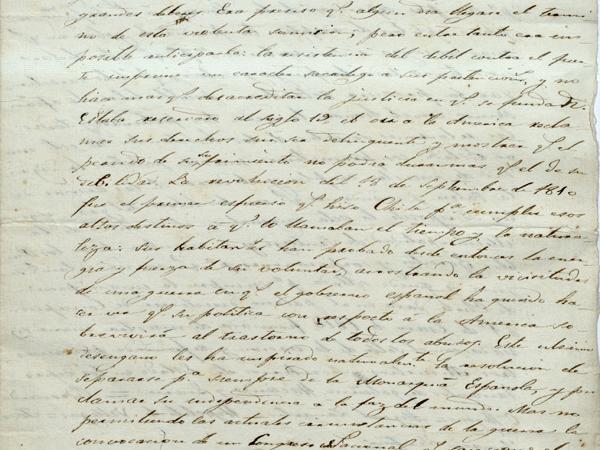 grandes deberes. Era preciso q.e algun dia llegase el termi
no de esta violenta sumision; pero entre tanto era im
posible anticiparla: la resistencia del debil contra el fuer
te imprime un caracter sacrilego a sus pretencion.s y no
hace mas q.e desacreditar la justicia en q.e se fundan.
Estaba reservado al siglo 19 el oir a la America recla
mar sus derechos sin ser delinquente y mostrar q.e el
periodo de su sufrimiento no podia durar mas q.e el de su
debilidad. La revolucion del 18 de Septiembre de 1810
fue el primer esfuerzo q.e hizo Chile p.a cumplir esos
altos destinos á q.e lo llamaban el tiempo y la natura
leza: sus habitantes han probado desde entonces la ener
gia y firmeza de su voluntad, arrostrando la vicicitudes
de una guerra en q.e el gobierno español ha querido ha
cer ver q.e su politica con respecto a la America so
brevivirá al trastorno de todos los abusos. Este ultimo
desengaño les ha inspirado naturalm.te la resolucion de
separarse p.a siempre de la Monarquia Española, y pro
clamar su independencia a la faz del mundo. Mas no
permitiendo las actuales circunstancias de la guerra la
convocacion de un Congreso Nacional